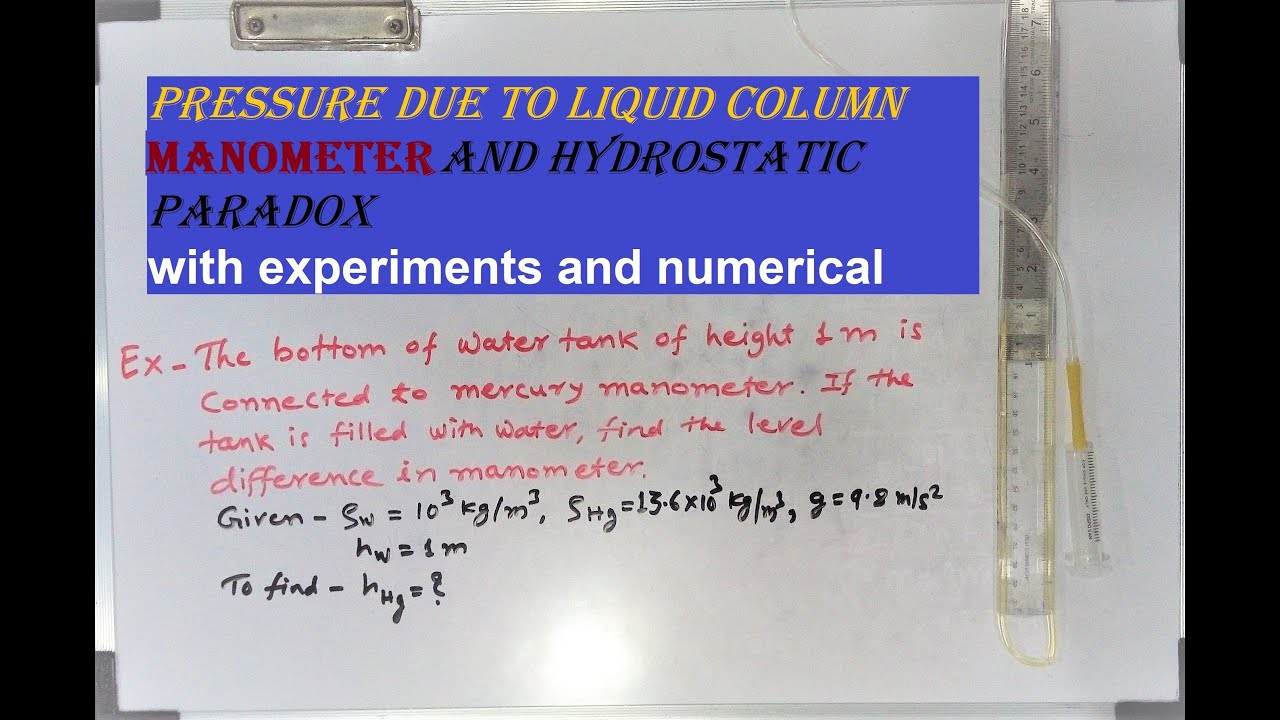 PRESSURE DUE TO LIQUID COLUMN
MANOMETER AND HYDROSTATIC
PARADOX
with experiments and numerical
Ex - The bottom of water tank of height 1 m is
Connected to mercury manometer. If the
tank is filled with water, find the level
difference in manometer.
Given - ρw = 10³ kg/m³, ρHg = 13.6×10³ kg/m³, g = 9.8 m/s²
hw = 1 m
To find - hHg = ?